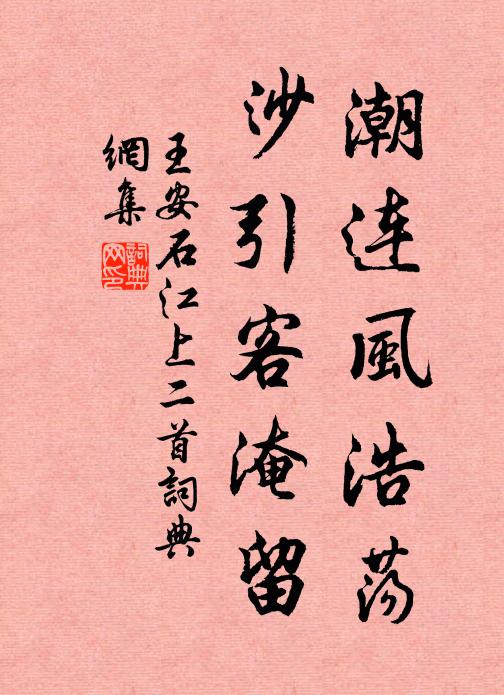 潮连風浩荡
沙引客淹留
王安石江上二首詞典
網集
詞典
网印